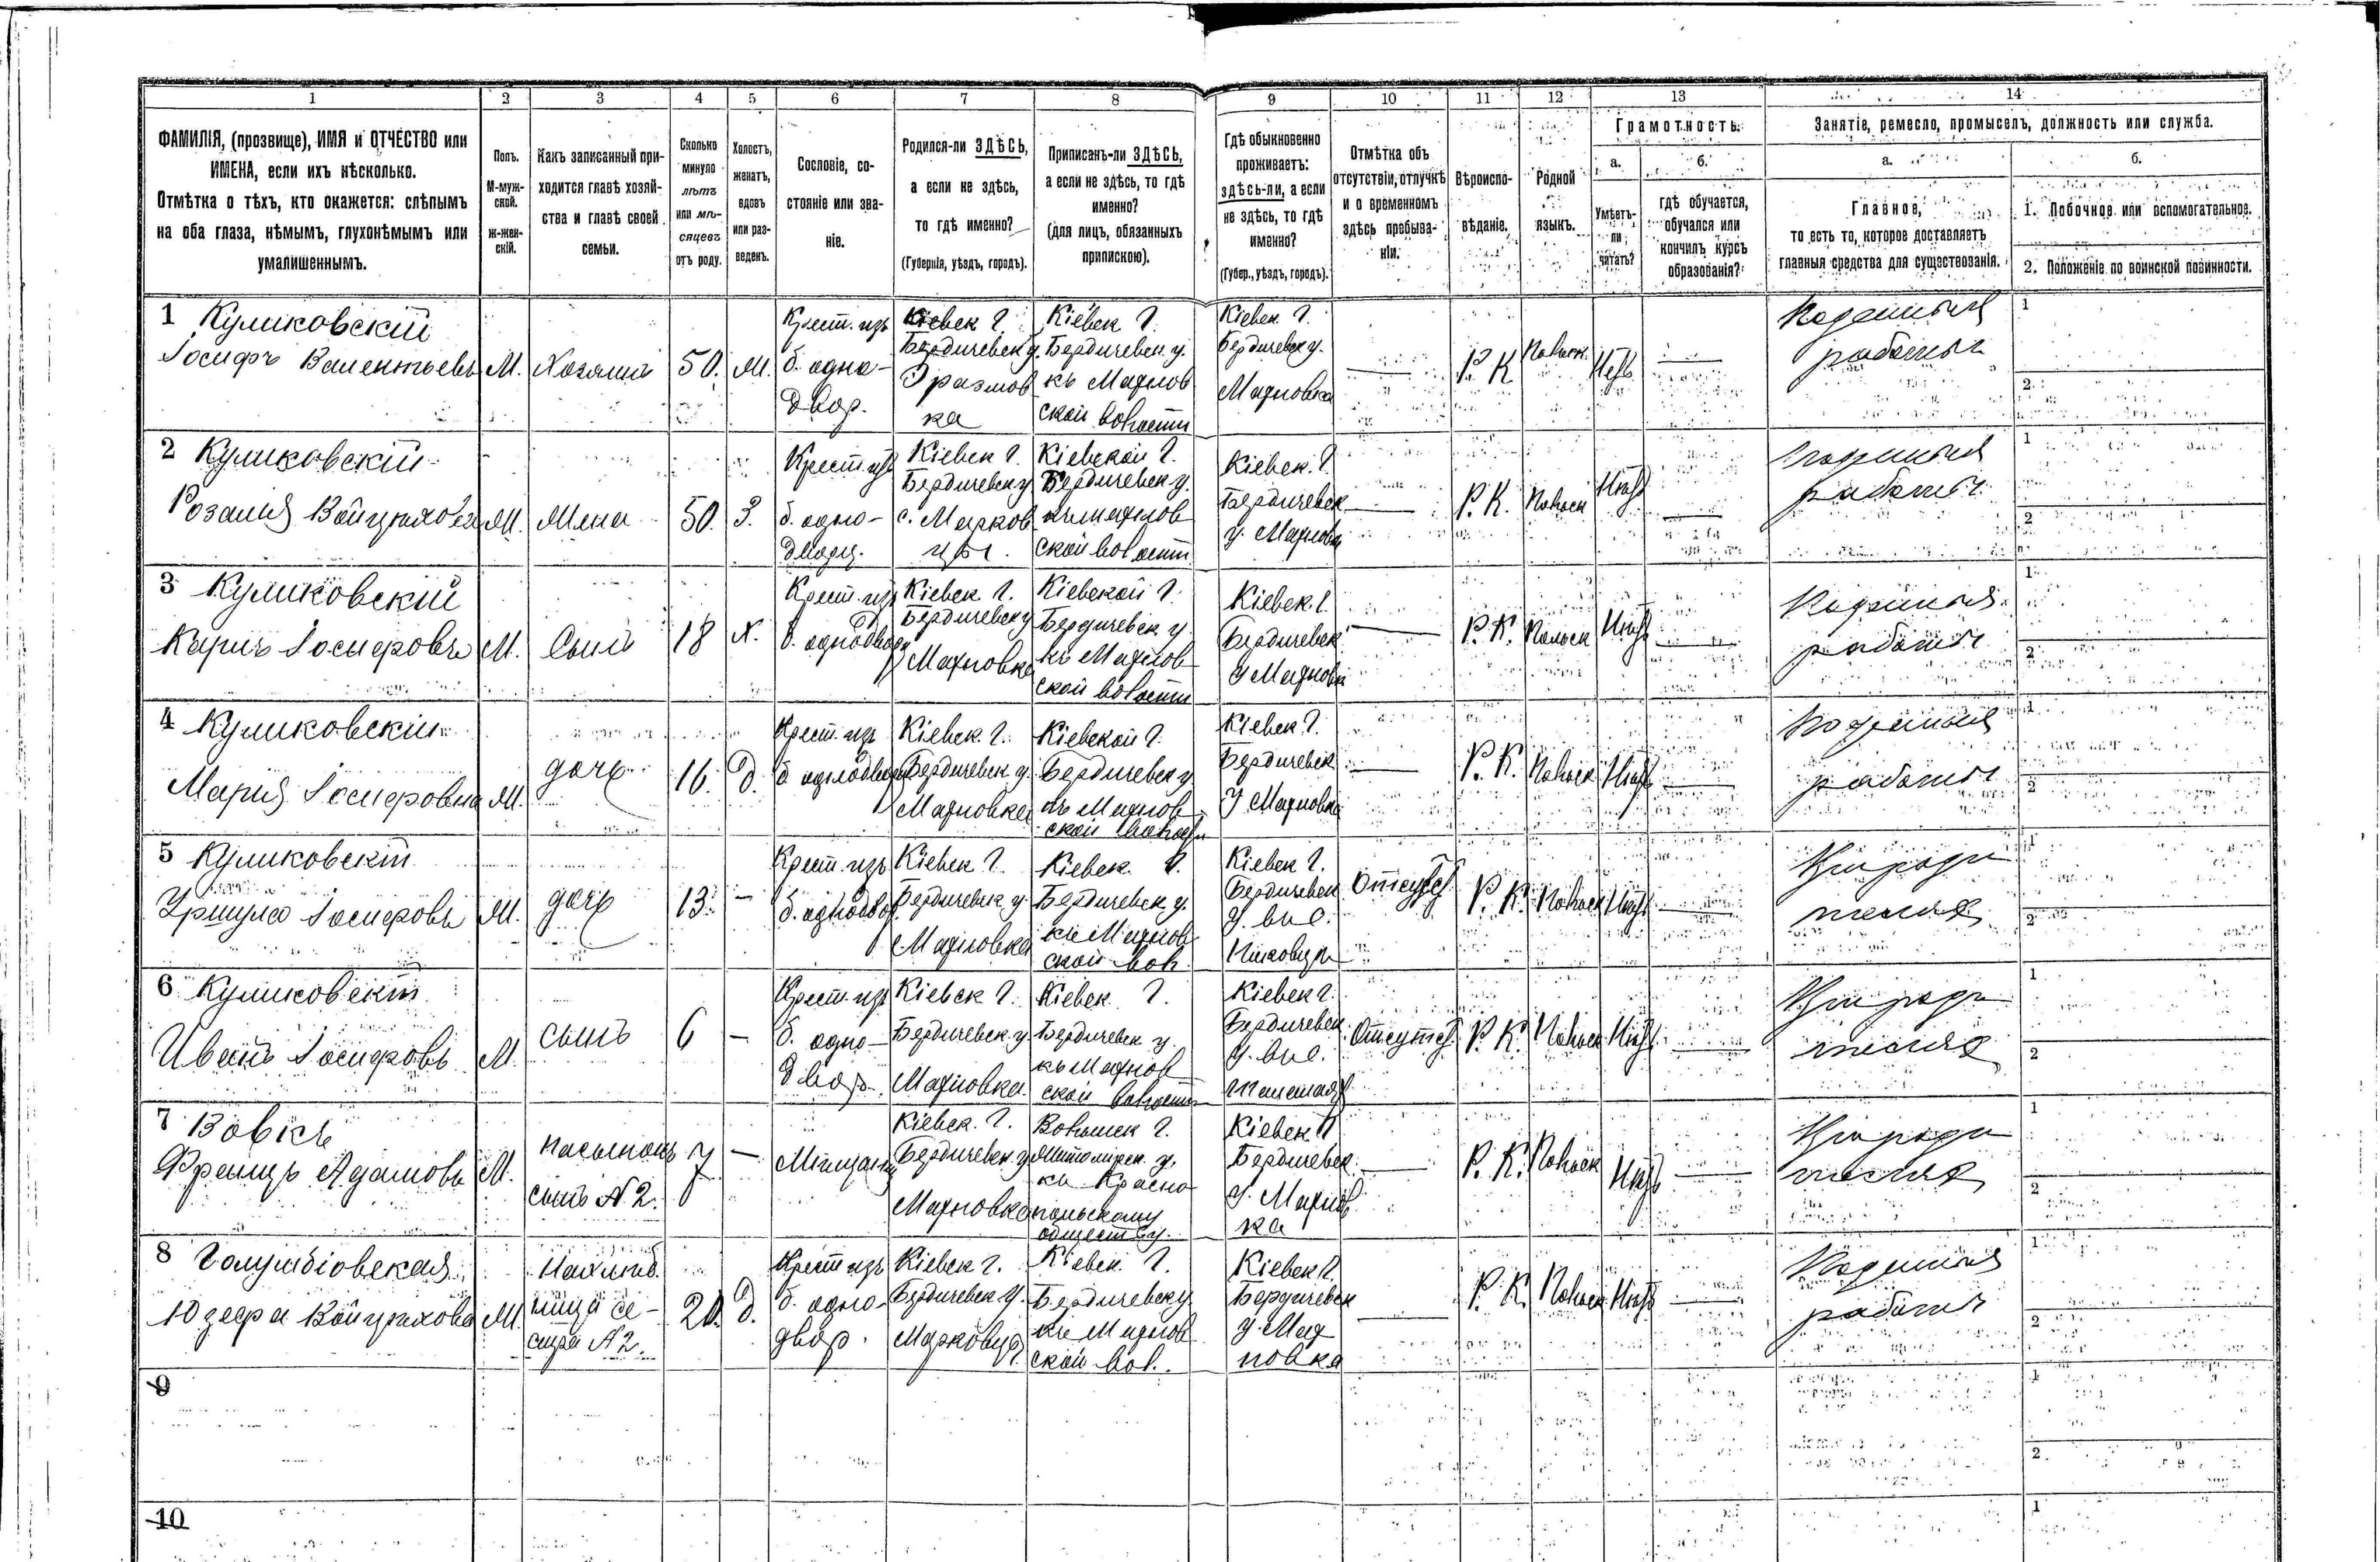 1 2 3 4 5 6 7 8 9 10 11 12 13 14
ФАМИЛІЯ, (прозвище), ИМЯ и ОТЧЕСТВО или
ИМЕНА, если ихъ нѣсколько.
Отмѣтка о тѣхъ, кто окажется: слѣпымъ
на оба глаза, нѣмымъ, глухонѣмымъ или
умалишеннымъ.
Полъ.
М-муж-
ской.
ж-жен-
скій.
Какъ записанный при-
ходится главѣ хозяй-
ства и главѣ своей
семьи.
Сколько
минуло
лѣтъ
или мѣ-
сяцевъ
отъ роду.
Холостъ,
женатъ,
вдовъ
или раз-
веденъ.
Сословіе, со-
стояніе или зва-
ніе.
Родился-ли ЗДѢСЬ,
а если не здѣсь,
то гдѣ именно?
(Губернія, уѣздъ, городъ).
Приписанъ-ли ЗДѢСЬ,
а если не здѣсь, то гдѣ
именно?
(для лицъ, обязанныхъ
припискою).
Гдѣ обыкновенно
проживаетъ:
здѣсь-ли, а если
не здѣсь, то гдѣ
именно?
(Губер., уѣздъ, городъ).
Отмѣтка объ
отсутствіи, отлучкѣ
и о временномъ
здѣсь пребыва-
ніи.
Вѣроиспо-
вѣданіе.
Родной
языкъ.
Грамотность.
а.
Умѣетъ-
ли
читать?
б.
гдѣ обучается,
обучался или
кончилъ курсъ
образованія?
Занятіе, ремесло, промыселъ, должность или служба.
а.
Главное,
то есть то, которое доставляетъ
главныя средства для существованія.
б.
1. Побочное или вспомогательное.
2. Положеніе по воинской повинности.
1 Куликовскій
Іосифъ Валентьевъ
М.
Хозяинъ
50.
М.
Крест. изъ
б. одно-
двор.
Кіевск Г.
Бердичевск у.
Эразмов
ка
Кіевск Г.
Бердичевск. у.
къ Махнов
ской волости
Кіевск Г.
Бердичевск у.
Махновка
Р. К
Польск.
Нетъ
Поденныя
работы
1
2
2 Куликовскій
Розалия Войцѣхова
М.
Жена
50.
З.
Крест. изъ
б. одно-
дворц.
Кіевск Г.
Бердичевск у
с. Марков
цы.
Кіевской Г.
Бердичевск у.
къ Махнов
ской волости
Кіевск. Г
Бердичевск
у. Махновка
Р. К.
Польск
Нетъ
Поденныя
работы
1
2
3 Куликовскій
Карлъ Іосифовъ
М.
Сынъ
18
Х.
Крест. изъ
б. однодвор
Кіевск. Г.
Бердичевск у
Махновка
Кіевской Г.
Бердичевск у
къ Махнов
ской волости
Кіевск. Г.
Бердичевск
у Махновка
Р. К.
Польск
Нетъ
Поденныя
работы
1
2
4 Куликовскій
Марія Іосифовна
М.
дочь
16.
Д.
Крест. изъ
б однодвор
Кіевск. Г.
Бердичевск у.
Махновка
Кіевской Г.
Бердичевск у
къ Махнов
ской волости
Кіевск Г.
Бердичевск
У Махновка
Р. К.
Польск
Нетъ
Поденныя
работы
1
2
5 Куликовскій
Уршула Іосифовъ
М.
дочь
13.
-
Крест. изъ
б. однодвор.
Кіевск Г.
Бердичевск у.
Махновка
Кіевск. Г.
Бердичевск у.
къ Махнов
ской вол.
Кіевск Г.
Бердичевск
У. вис.
Отсутст
Р. К.
Польск
Нетъ
При роди
теляхъ
1
2
6 Куликовскій
Иванъ Іосифовъ
М.
сынъ
6
-
Крест. изъ
б. одно-
двор.
Кіевск Г.
Бердичевск. у.
Махновка
Кіевск. Г.
Бердичевск у.
къ Махнов
ской волости
Кіевск Г.
Бердичевск
У. вис.
Отсутст
Р. К.
Польск
Нетъ
При роди
теляхъ
1
2
7 Вовкъ
Францъ Адамовъ
М.
Пасынокъ
сынъ N 2.
7
-
Мѣщанин
Кіевск. Г.
Бердичевск. у
Махновка
Волынск Г.
Житомирск. у.
къ Красно
польскому
обществу
Кіевск Г
Бердичевск
у. Махнов
ка
Р. К.
Польск
Нетъ
При роди
теляхъ
1
2
8 Голумбіовская
Юзефа Войцѣхова
М.
ница се-
стра N 2.
20.
д.
Крест изъ
б. одно-
двор.
Кіевск Г.
Бердичевск у.
Марковцы
Кіевск. Г.
Бердичевск у
къ Махнов
ской вол.
Кіевск Г.
Бердичевск
у. Мах
новка
Р. К.
Польск
Нетъ
Поденныя
работы
1
2
9
1
2.
10
1